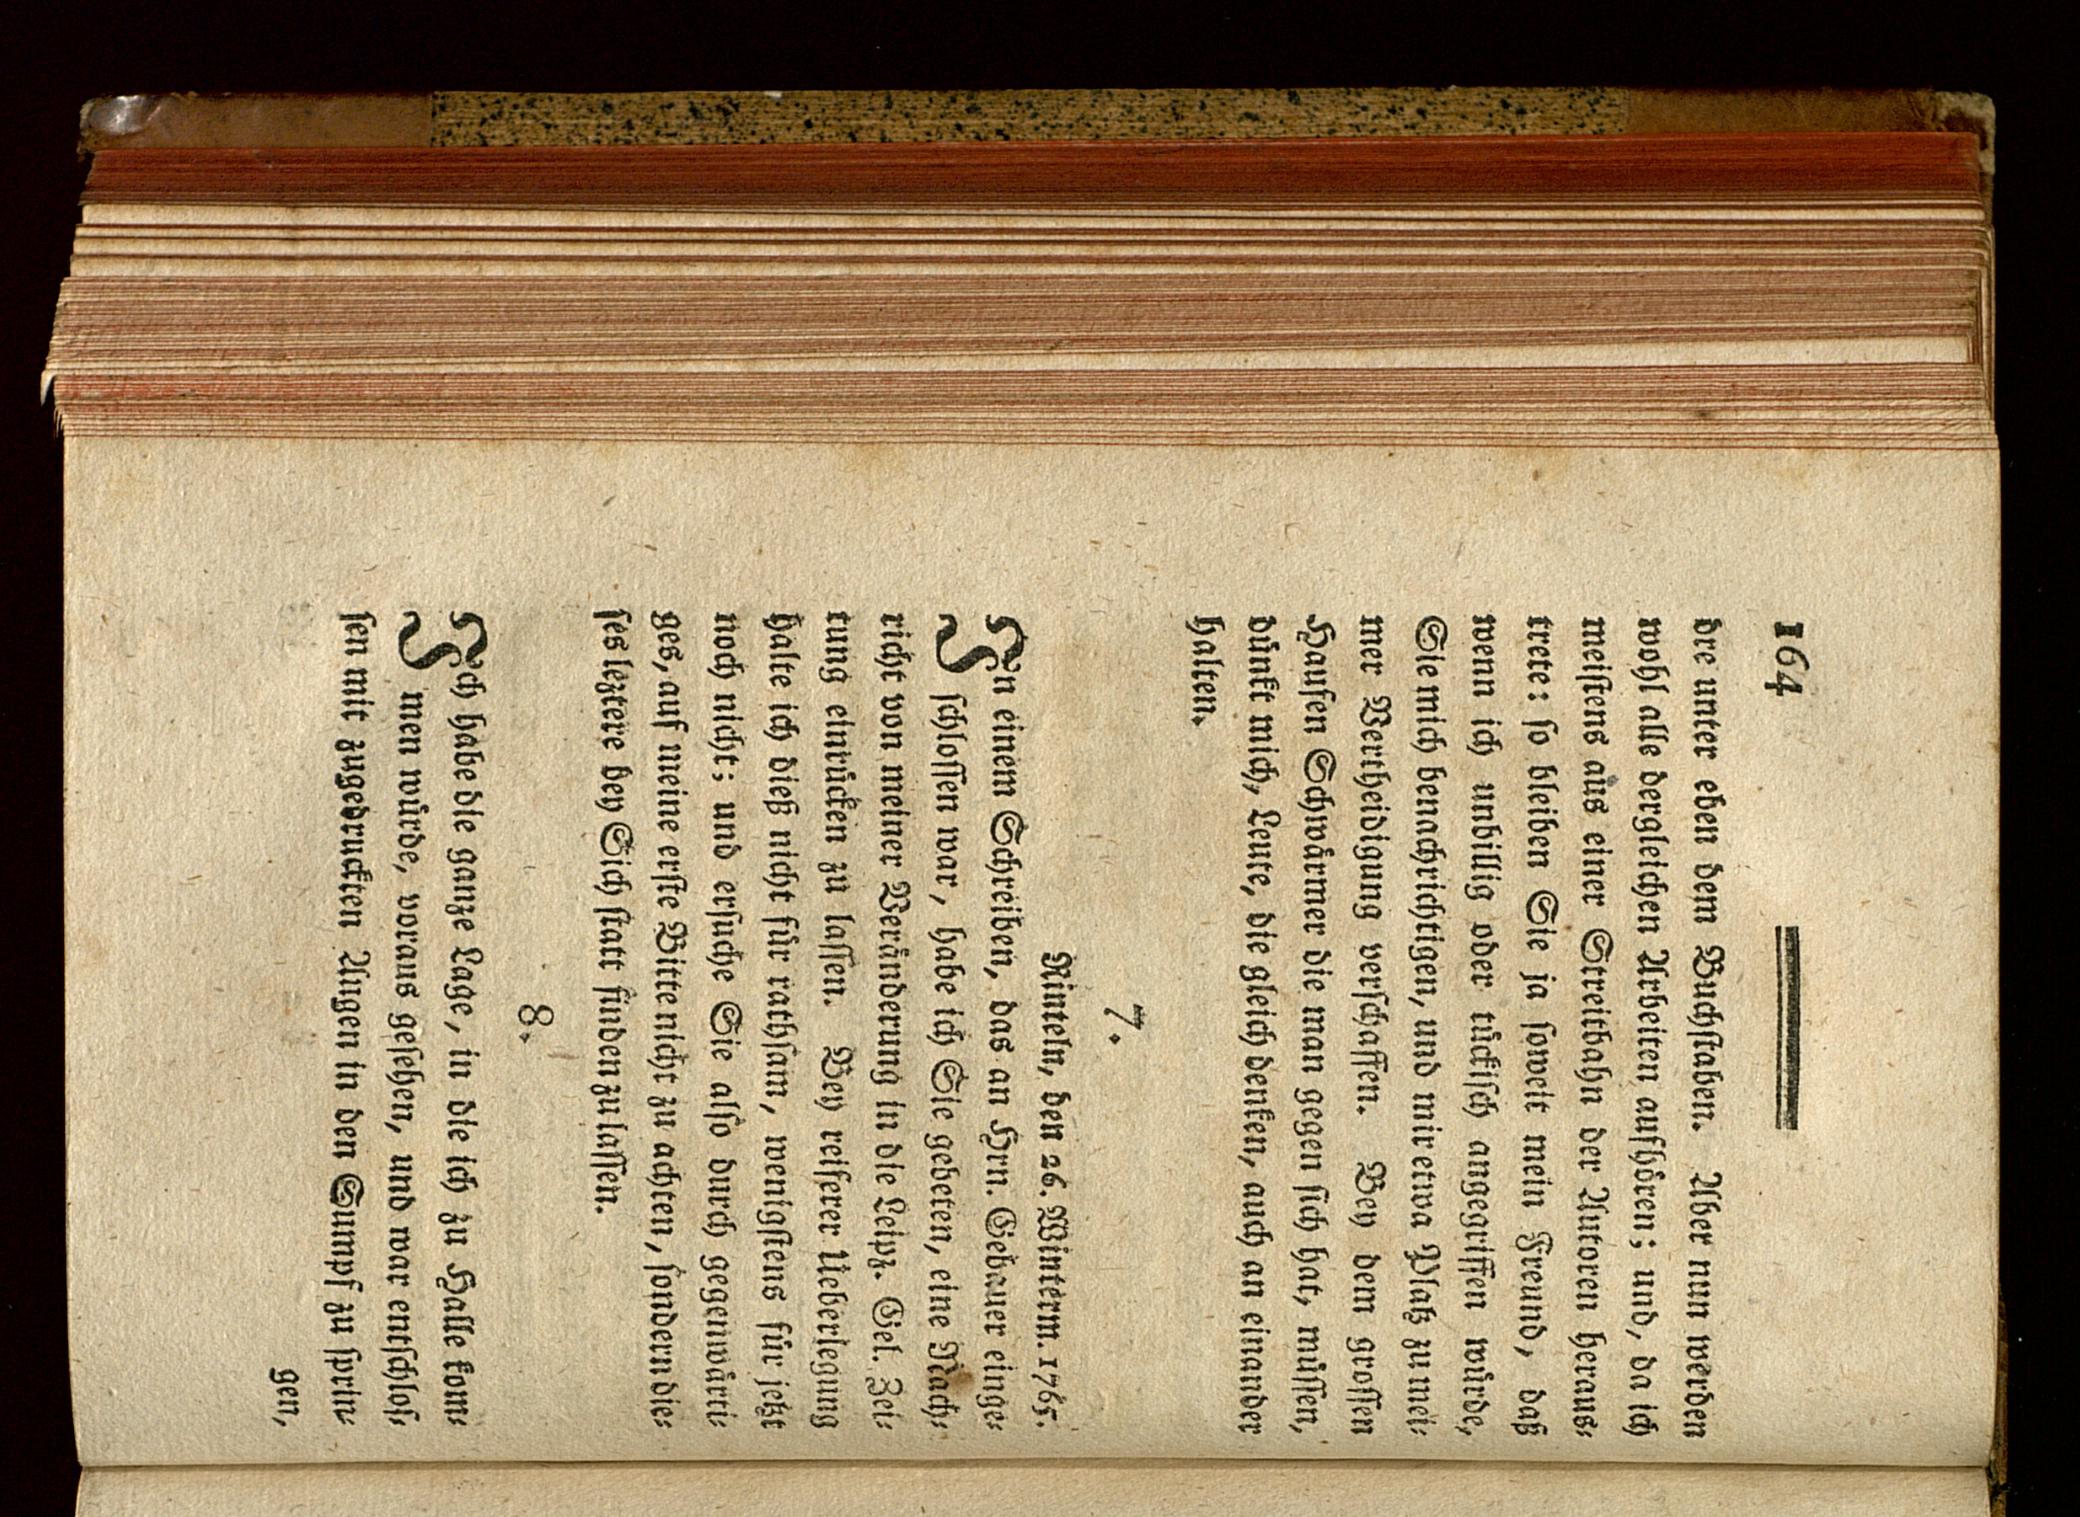 164
dre unter eben dem Buchſtaben. Aber nun werden
wohl alle dergleichen Arbeiten aufhören; und, da ich
meiſtens aus einer Streitbahn der Autoren heraus⸗
trete: ſo bleiben Sie ja ſoweit mein Freund, daß
wenn ich unbillig oder tückiſch angegriffen würde,
Sie mich benachrichtigen, und mir etwa Platz zu mei⸗
ner Vertheidigung verſchaffen. Bey dem groſſen
Haufen Schwärmer die man gegen ſich hat, müſſen,
dünkt mich, Leute, die gleich denken, auch an einander
halten.
7.
Rinteln, den 26. Winterm. 1765.
In einem Schreiben, das an Hrn. Gebauer einge⸗
ſchloſſen war, habe ich Sie gebeten, eine Nach⸗
richt von meiner Veränderung in die Leipz. Gel. Zei⸗
tung einrücken zu laſſen. Bey reiferer Ueberlegung
halte ich dieß nicht für rathſam, wenigſtens für jetzt
noch nicht; und erſuche Sie alſo durch gegenwärti⸗
ges, auf meine erſte Bitte nicht zu achten, ſondern die⸗
ſes letztere bey Sich ſtatt finden zu laſſen.
8.
Ich habe die ganze Lage, in die ich zu Halle kom⸗
men würde, voraus geſehen, und war entſchloſ⸗
ſen mit zugedruckten Augen in den Sumpf zu ſprin⸗
gen,